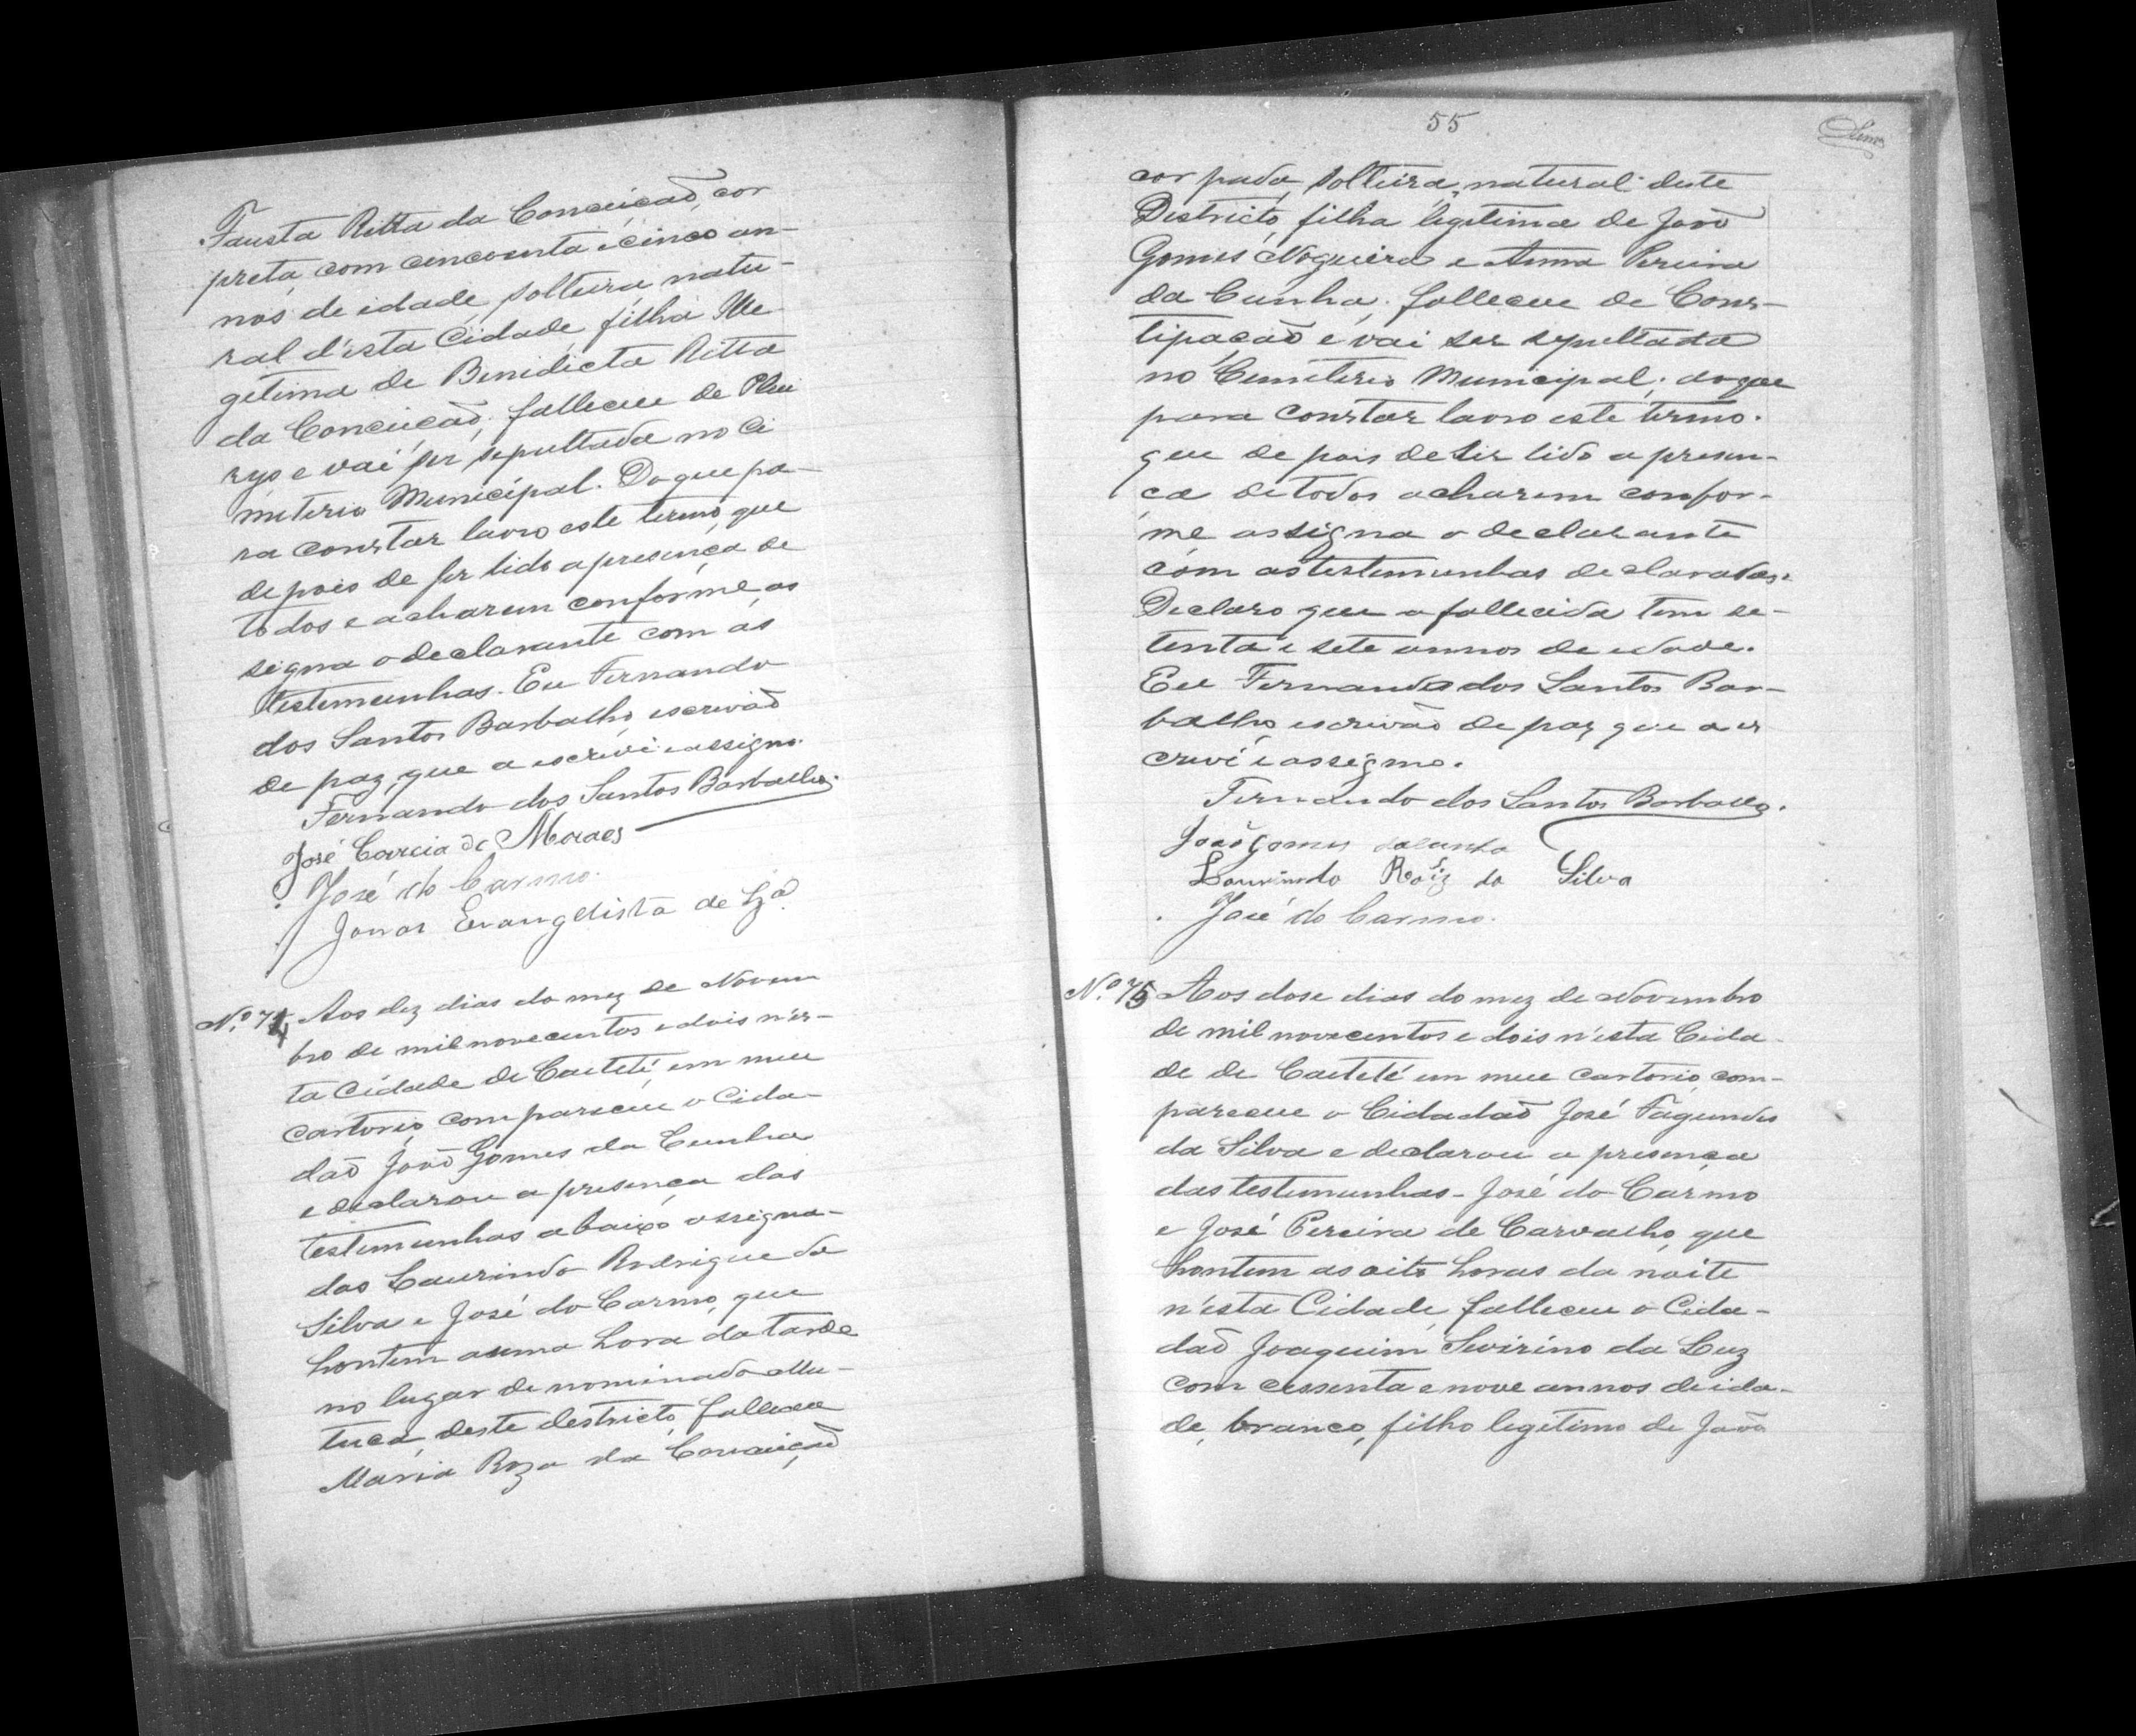 Fausta Ritta da Conceição, cor
preta, com cincoenta e cinco an-
nos de idade, solteira natu-
ral d'esta Cidade, filha Ille
gitima de Benidicta Ritta
da Conceição; falleceu de Pleu
rys e vai ser sepultada no Ci
miterio Municipal. Do que pa-
ra constar lavro este termo, que
depois de ser lido a presença de
todos e acharem conforme, as
signa o declarante com as
testemunhas. Eu Fernando
dos Santos Barbalho, escrivão
de paz, que a escrivi e assigno.
Fernando dos Santos Barbalho.
José Garcia de Moraes
José do Carmo.
Jonas Evangelista de Sza.
N.º 74 Aos dez dias do mez de Novem
bro de mil novecentos e dois n'es-
ta Cidade de Caeteté, em meu
cartorio, compareceu o Cida-
dão João Gomes da Cunha
e declarou a presença das
testemunhas abaixo assigna-
das Laurindo Rodrigue da
Silva e José do Carmo, que
hontem a uma hora da tarde
no lugar denominado Mu-
tuca, deste destricto, falleceu
Maria Roza da Conceição
55
cor parda, solteira, natural deste
Districto, filha legitima de João
Gomes Nogueira e Anna Pereira
da Cunha; falleceu de Cons-
tipação e vai ser sepultada
no Cemiterio Municipal; do que
para constar lavro este termo.
que depois de ser lido a presen-
ça de todos acharem confor-
me assigna o declarante
com as testemunhas declaradas.
Declaro que a fallecida tem se-
tenta e sete annos de edade.
Eu Fernando dos Santos Bar-
balho, escrivão de paz que a es
crevi e assigno.
Fernando dos Santos Barbalho.
João Gomes da Cunha
Lourindo Roiz da Silva
José do Carmo.
N.º 75 Aos dose dias do mez de Novembro
de mil novecentos e dois n'esta Cida-
de de Caeteté em meu cartorio, com-
pareceu o Cidadão José Fagundes
da Silva e declarou a presença
das testemunhas - José do Carmo
e José Pereira de Carvalho, que
hontem as oito horas da noite
n'esta Cidade, falleceu o Cida-
dão Joaquim Sivirino da Luz
com cessenta e nove annos de ida-
de, branco, filho legitimo de João